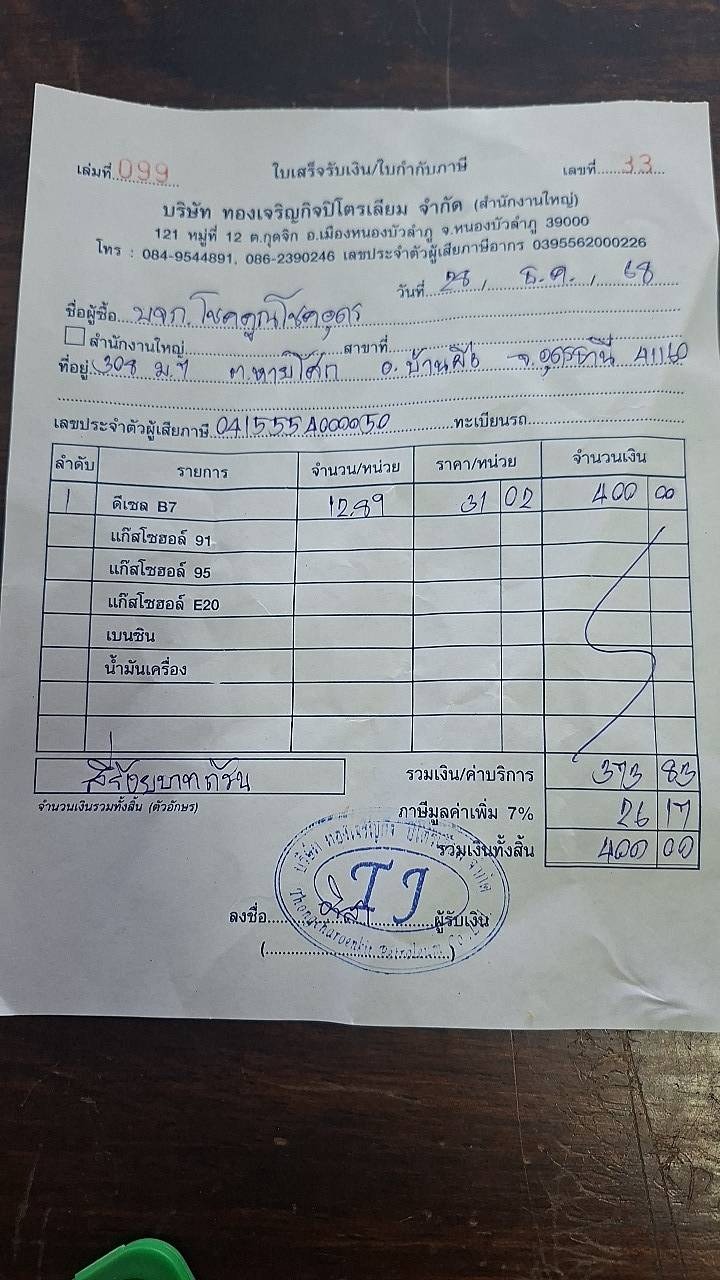 เล่มที่ 099 ใบเสร็จรับเงิน/ใบกำกับภาษี เลขที่ 33
บริษัท ทองเจริญกิจปิโตรเลียม จำกัด (สำนักงานใหญ่)
121 หมู่ที่ 12 ต.กุดจิก อ.เมืองหนองบัวลำภู จ.หนองบัวลำภู 39000
โทร : 084-9544891, 086-2390246 เลขประจำตัวผู้เสียภาษีอากร 0395562000226
วันที่ 28 / ธ.ค. / 68
ชื่อผู้ซื้อ บจก. โชคคูณโชคอุดร
สำนักงานใหญ่ สาขาที่
ที่อยู่ 308 ม.7 ต.หายโศก อ.บ้านผือ จ.อุดรธานี 41160
เลขประจำตัวผู้เสียภาษี 0415554000050 ทะเบียนรถ
ลำดับ รายการ จำนวน/หน่วย ราคา/หน่วย จำนวนเงิน
1 ดีเซล B7 12.89 31 02 400 00
แก๊สโซฮอล์ 91
แก๊สโซฮอล์ 95
แก๊สโซฮอล์ E20
เบนซิน
น้ำมันเครื่อง
สี่ร้อยบาทถ้วน รวมเงิน/ค่าบริการ 373 83
จำนวนเงินรวมทั้งสิ้น (ตัวอักษร) ภาษีมูลค่าเพิ่ม 7% 26 17
รวมเงินทั้งสิ้น 400 00
บริษัท ทองเจริญกิจ ปิโตรเลียม จำกัด
TJ
ลงชื่อ ผู้รับเงิน
Thongcharoenkit Petroleum Co.,Ltd.